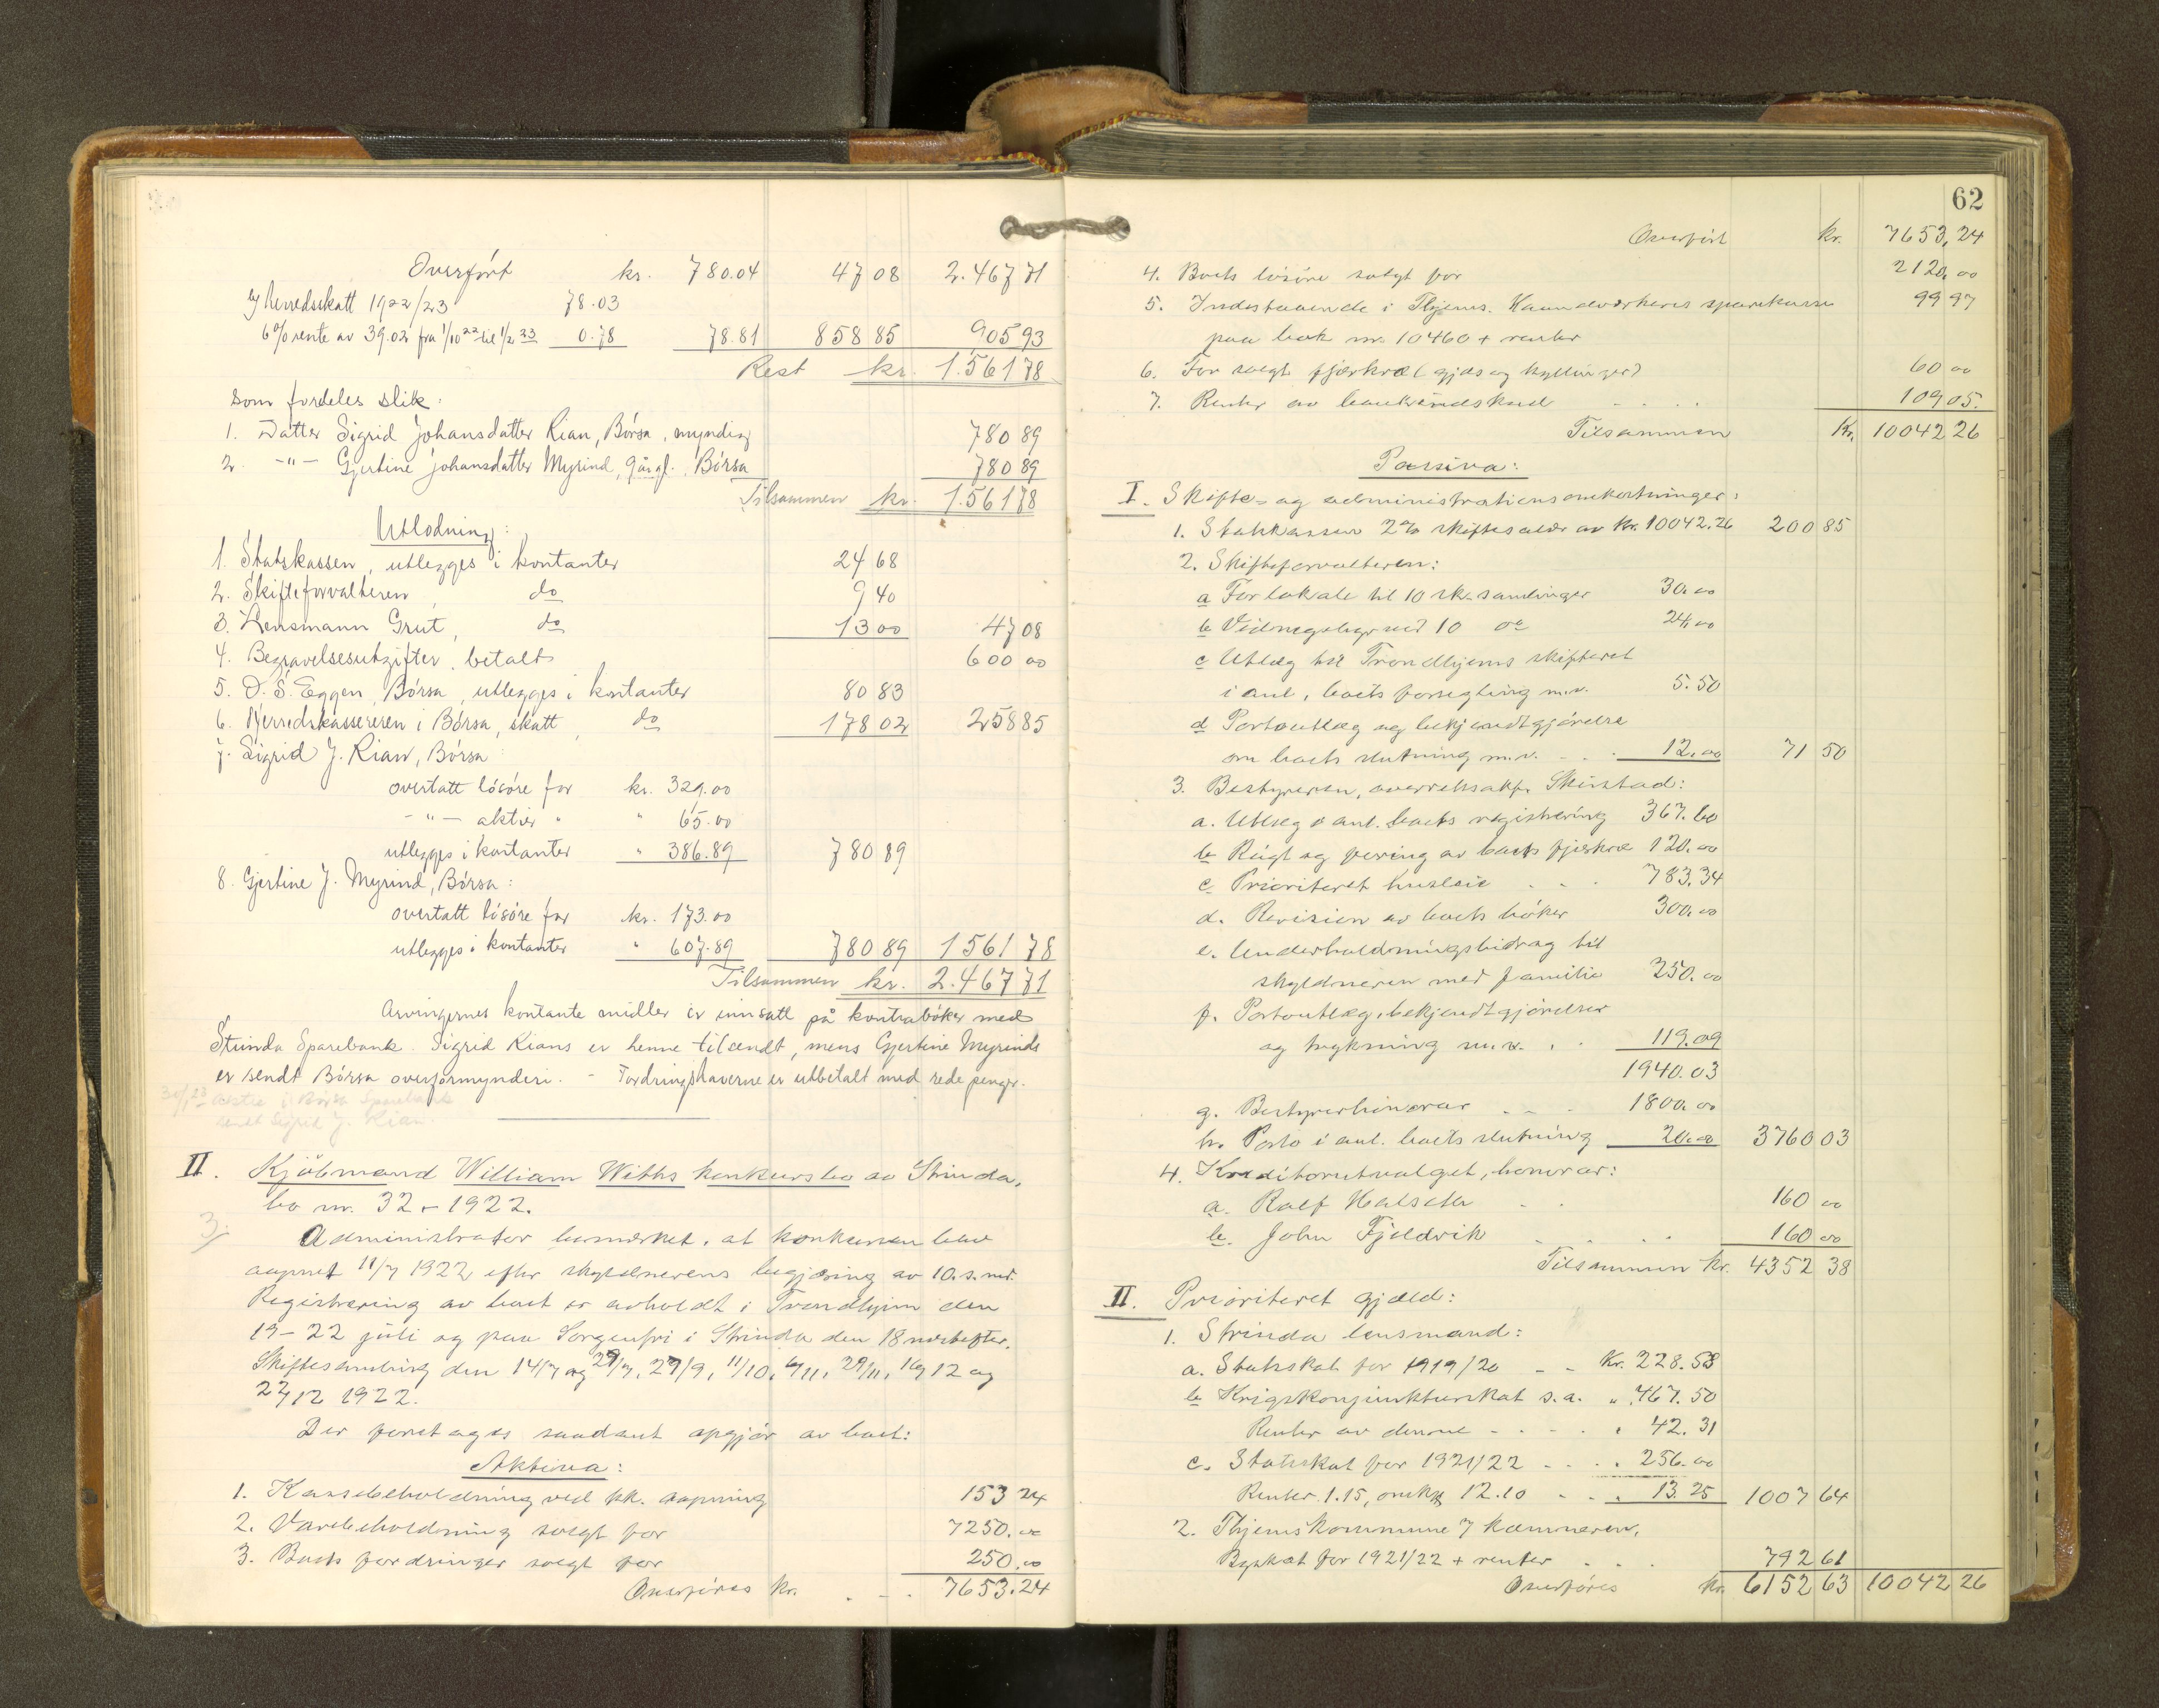 Overført kr. 780.04 47 08 2.467 71
c/ Herredsskatt 1922/23 78.03
6% rente av 39.02 fra 1/10 22 til 1/2 23 0.78 78.81 858 85 905 93
Rest kr. 1.561 78
som fordeles slik:
1. Datter Sigrid Johansdatter Rian, Børsa, myndig 780 89
2. -"- Gjertine Johansdatter Myrind, 9 år gl. Børsa 780 89
Tilsammen kr. 1.561 78
Utlodning:
1. Statskassen, utlegges i kontanter 24 68
2. Skifteforvalteren, do 9 40
3. Lensmann Grut, do 13 00 47 08
4. Begravelsesutgifter, betalt 600 00
5. O. S. Eggen, Børsa, utlegges i kontanter 80 83
6. Herredskassereren i Børsa, skatt, do 178 02 258 85
7. Sigrid J. Rian, Børsa:
overtatt løsøre for kr. 329.00
-"- aktier " " 65.00
utlegges i kontanter " 386.89 780 89
8. Gjertine J. Myrind, Børsa:
overtatt løsøre for kr. 173.00
utlegges i kontanter " 607.89 780 89 1561 78
Tilsammen kr. 2.467 71
Arvingernes kontante midler er innsatt på kontrabøker med
Strinda Sparebank. Sigrid Rians er henne tilsendt, mens Gjertine Myrinds
er sendt Børsa overformynderi. - Fordringshaverne er utbetalt med rede penger.
aktie i Børsa Sparebank
sendt Sigrid J. Rian.
II. Kjøbmand William Withs konkursbo av Strinda,
bo nr. 32 - 1922.
3/
Administrator bemerket, at konkursen blev
aapnet 11/7 1922 efter skyldnerens begjæring av 10. s. md.
Registrering av boet er avholdt i Trondhjem den
19-22 juli og paa Sorgenfri i Strinda den 18 næstefter.
Skiftesamling den 14/7 og 29/7, 27/9, 11/10, 6/11, 29/11, 16/12 og
27/12 1922.
Der foretages saadant opgjør av boet:
Aktiva:
1. Kassebeholdning ved kk. aapning 153 24
2. Varebeholdning solgt for 7250.00
3. Boets fordringer solgt for 250.00
Overføres kr. . - . 7653.24
62
Overført kr. 7653,24
4. Boets løsøre solgt for 2120.00
5. Indestaaende i Thjems. Haandværkeres sparekasse 99 97
paa bok nr. 10460 + renter
6. For solgt fjærkræ (gjæs og kyllinger) 60 00
7. Renter av bankindskud . . . . 109 05.
Tilsammen Kr. 10042 26
Passiva:
I. Skifte- og administrationsomkostninger:
1. Statskassen 2% skiftesalær av Kr. 10042.26 200 85
2. Skifteforvalteren:
a For lokale til 10 sk.samlinger 30.00
b Vidnegebyr ved 10 do 24.00
c Utlæg til Trondhjems skifteret
i anl. boets forsegling m.v. 5.50
d Portoutlæg og bekjendtgjørelse
om boets slutning m.v. . . 12.00 71 50
3. Bestyreren, overretssakf. Skirstad:
a. Utlæg i anl. boets registrering 367.60
b Røgt og foring av boets fjærkræ 120.00
c. Prioritert husleie . . . 783.34
d. Revision av boets bøker 300.00
e. Underholdningsbidrag til
skyldneren med familie 250.00
f. Portoutlæg, bekjendtgjørelser
og trykning m.v. . . 119.09
1940.03
g. Bestyrerhonorar . . . 1800.00
h. Porto i anl. boets slutning 20.00 3760 03
4. Kreditorutvalget, honorar:
a. Ralf Halseth . . 160 00
b. John Fjeldvik . . . . 160 00
Tilsammen kr. 4352 38
II. Prioritert gjæld:
1. Strinda lensmand:
a. Statsskat for 1919/20 - - Kr. 228.58
b Krigskonjunkturskat s.a. " 467.50
Renter av denne - . . . 42.31
c. Statsskat for 1921/22 - . . . 256.00
Renter 1.15, omkg. 12.10 - . . 13.25 1007 64
2. Thjems kommune v/ kæmneren,
Byskat for 1921/22 + renter . . . 792 61
Overføres Kr. 6152 63 10042 26